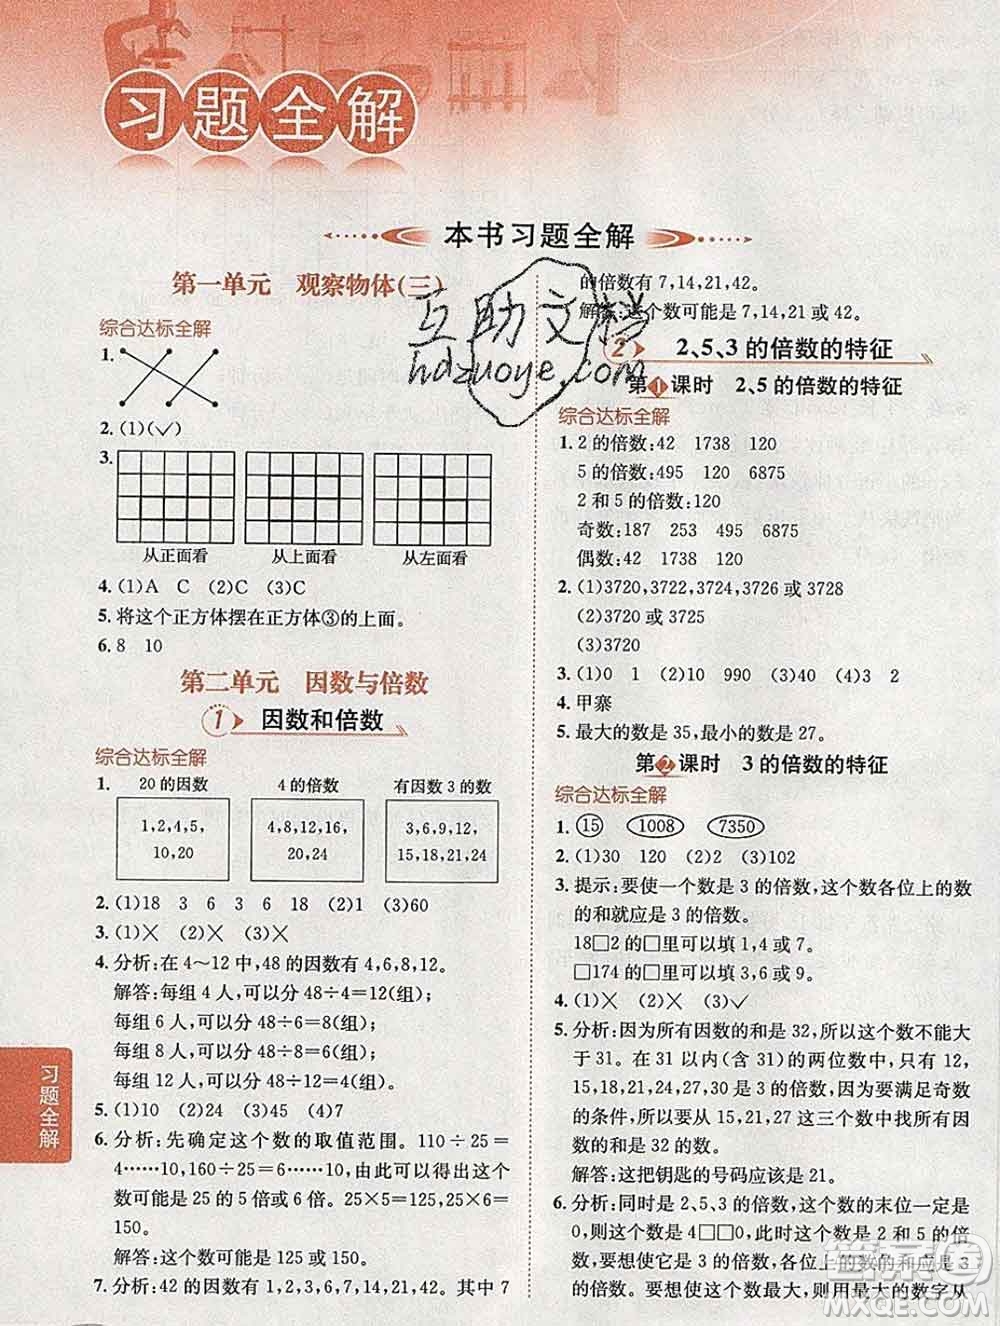 习题全解
本书习题全解
第一单元 观察物体(三)
综合达标全解
1.
2.(1)(✓)
3.
从正面看 从上面看 从左面看
4.(1)A C (2)C (3)C
5.将这个正方体摆在正方体③的上面。
6.8 10
第二单元 因数与倍数
1 因数和倍数
综合达标全解
1. 20 的因数 4 的倍数 有因数 3 的数
1,2,4,5, 4,8,12,16, 3,6,9,12,
10,20 20,24 15,18,21,24
2.(1)18 3 6 3 6 18 (2)1 (3)60
3.(1)× (2)× (3)×
4.分析:在 4～12 中,48 的因数有 4,6,8,12。
解答:每组 4 人,可以分 48÷4=12(组);
每组 6 人,可以分 48÷6=8(组);
每组 8 人,可以分 48÷8=6(组);
每组 12 人,可以分 48÷12=4(组)。
5.(1)10 (2)24 (3)45 (4)7
6.分析:先确定这个数的取值范围。110÷25=
4……10,160÷25=6……10,因此可以得出这个
数可能是 25 的 5 倍或 6 倍。25×5=125,25×6=
150。
解答:这个数可能是 125 或 150。
7.分析:42 的因数有 1,2,3,6,7,14,21,42。其中 7
的倍数有 7,14,21,42。
解答:这个数可能是 7,14,21 或 42。
2 2、5、3 的倍数的特征
第1课时 2、5 的倍数的特征
综合达标全解
1.2 的倍数:42 1738 120
5 的倍数:495 120 6875
2 和 5 的倍数:120
奇数:187 253 495 6875
偶数:42 1738 120
2.(1)3720,3722,3724,3726 或 3728
(2)3720 或 3725
(3)3720
3.(1)0 1 (2)10 990 (3)4 (4)3 2
4.甲寨
5.最大的数是 35,最小的数是 27。
第2课时 3 的倍数的特征
综合达标全解
1.15 1008 7350
2.(1)30 120 (2)2 (3)102
3.提示:要使一个数是 3 的倍数,这个数各位上的数
的和就应是 3 的倍数。
18□2 的□里可以填 1,4 或 7。
□174 的□里可以填 3,6 或 9。
4.(1)× (2)× (3)✓
5.分析:因为所有因数的和是 32,所以这个数不能大
于 31。在 31 以内(含 31)的两位数中,只有 12,
15,18,21,24,27,30 是 3 的倍数,因为要满足奇数
的条件,所以要从 15,21,27 这三个数中找所有因
数的和是 32 的数。
解答:这把钥匙的号码应该是 21。
6.分析:同时是 2、5、3 的倍数,这个数的末位一定是
0,则这个数是 4□□0,此时这个数是 2 和 5 的倍
数,要想使它是 3 的倍数,各位上的数的和应是 3
的倍数,要想使这个数最大,则用最大的数字从
习题全解
互助文档
hdzuoye.com
答案圈
MXQE.COM